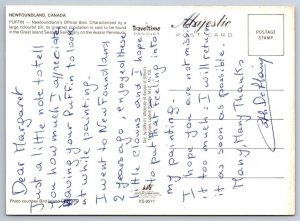 NEWFOUNDLAND, CANADA
PUFFIN — Newfoundland's Official Bird. Characterized by a
large colourful bill, its
in the Great Island Sea
on the Avalon Peninsula.
Traveltime
Majestic
POSTCARD
POSTAGE
STAMP
Dear Margaret
Just a little note to tell
you how much I appreciate
having your Puffin to look
at while painting.
I went to Newfoundland
2 years ago, enjoyed these
little clowns and I hope
to put that feeling into
my painting.
I hope you are not missing
it too much. I will return
it as soon as possible.
Many, Many Thanks
Photo courtesy
KS-9577